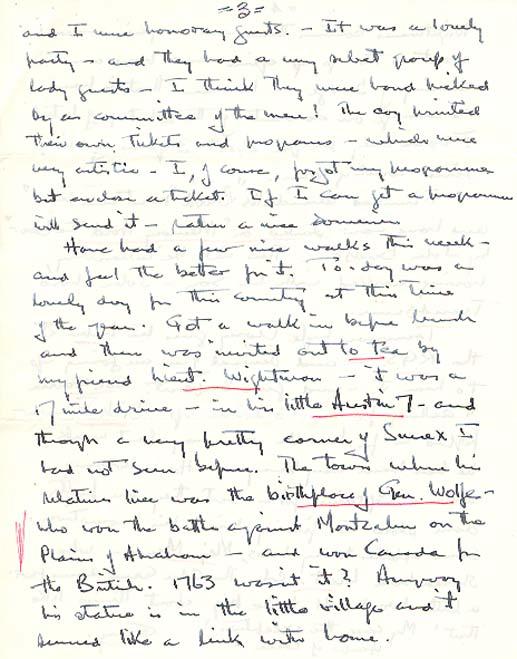 -3-
and I were honorary guests. - It was a lovely
party - and they had a very select group of
lady guests - I think they were hand picked
by a committee of the men! The coy printed
their own tickets and programs - which were
very artistic - I, of course, forgot my programme
but enclose a ticket. If I can get a programme
will send it - rather a nice souvenir
Have had a few nice walks this week -
and feel the better for it. To-day was a
lovely day for this country at this time
of the year. Got a walk in before lunch
and then was invited out to tea by
my friend Lieut. Wightman - it was a
17 mile drive - in his little Austin 7 - and
through a very pretty corner of Sussex I
had not seen before. The town where his
relatives live was the birthplace of Gen. Wolfe -
who won the battle against Montcalm on the
Plains of Abraham - and won Canada for
the British. 1763 wasn't it? Anyway
his statue is in the little village and it
seemed like a link with home.